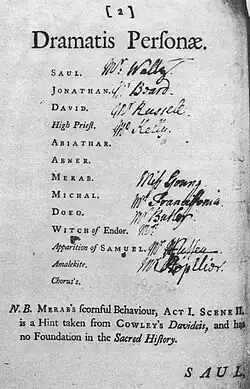 [ 2 ]
Dramatis Personæ.
SAUL. Mr. Waltz.
JONATHAN. Mr. Beard.
DAVID. Mr Russell
High Priest. Mr Kelly.
ABIATHAR.
ABNER.
MERAB. Miss Young
MICHAL. Mrs Francesina
DOEG. Mr Butler
WITCH of Endor. Mr.
Apparition of SAMUEL. Mr Hussey
Amalekite. Mr
Chorus's.
N. B. MERAB's scornful Behaviour, ACT I. SCENE II.
is a Hint taken from COWLEY's Davideis, and has
no Foundation in the Sacred History.
SAUL,